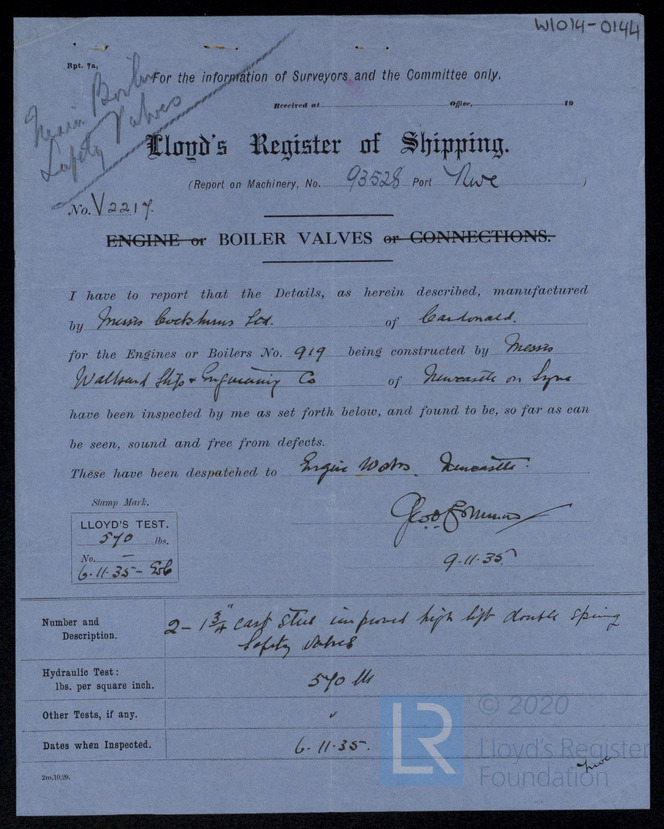 W1014-0144
Rpt. 7a.
Main Boiler
Safety Valves
For the information of Surveyors and the Committee only.
Received at Office, 19
Lloyd's Register of Shipping.
(Report on Machinery, No. 93528 Port Nwe )
No. V2217.
ENGINE or BOILER VALVES or CONNECTIONS.
I have to report that the Details, as herein described, manufactured
by Messrs Cockburns Ltd. of Cardonald.
for the Engines or Boilers No. 919 being constructed by Messrs
Wallsend Slip & Engineering Co of Newcastle on Tyne
have been inspected by me as set forth below, and found to be, so far as can
be seen, sound and free from defects.
These have been despatched to Engine Works. Newcastle.
Stamp Mark.
LLOYD'S TEST.
570 lbs.
No. —
6-11-35-
9-11-35
Number and Description.
2 - 1 3/4" cast steel improved high lift double spring
Safety Valves
Hydraulic Test:
lbs. per square inch.
570 lbs
Other Tests, if any.
"
Dates when Inspected.
6-11-35.
Nwe
2m,10,29.
LR
© 2020
Lloyd's Register
Foundation